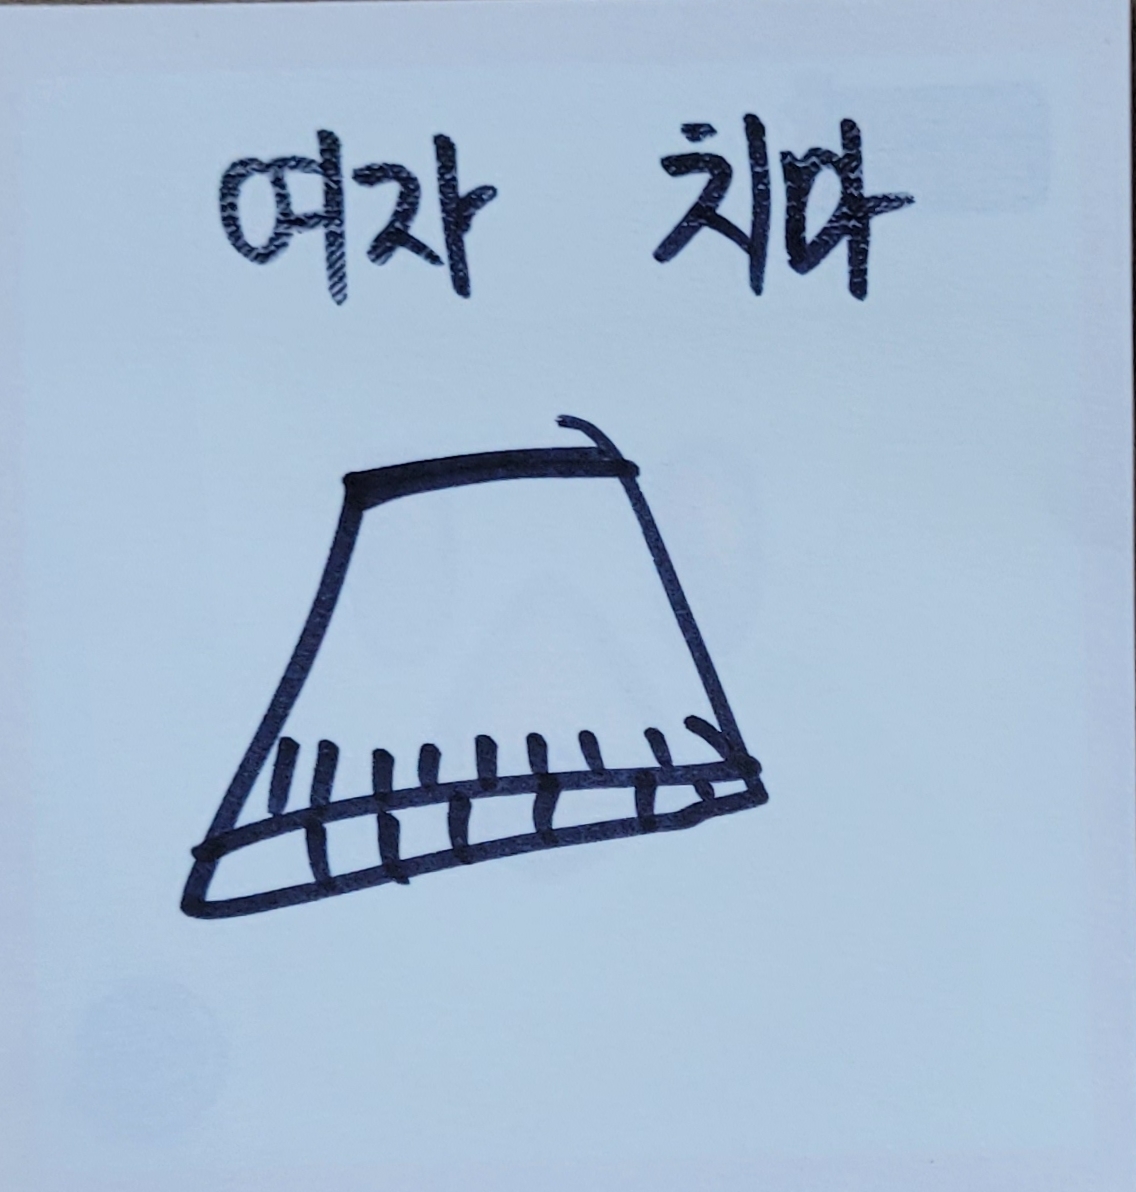 여자 치마